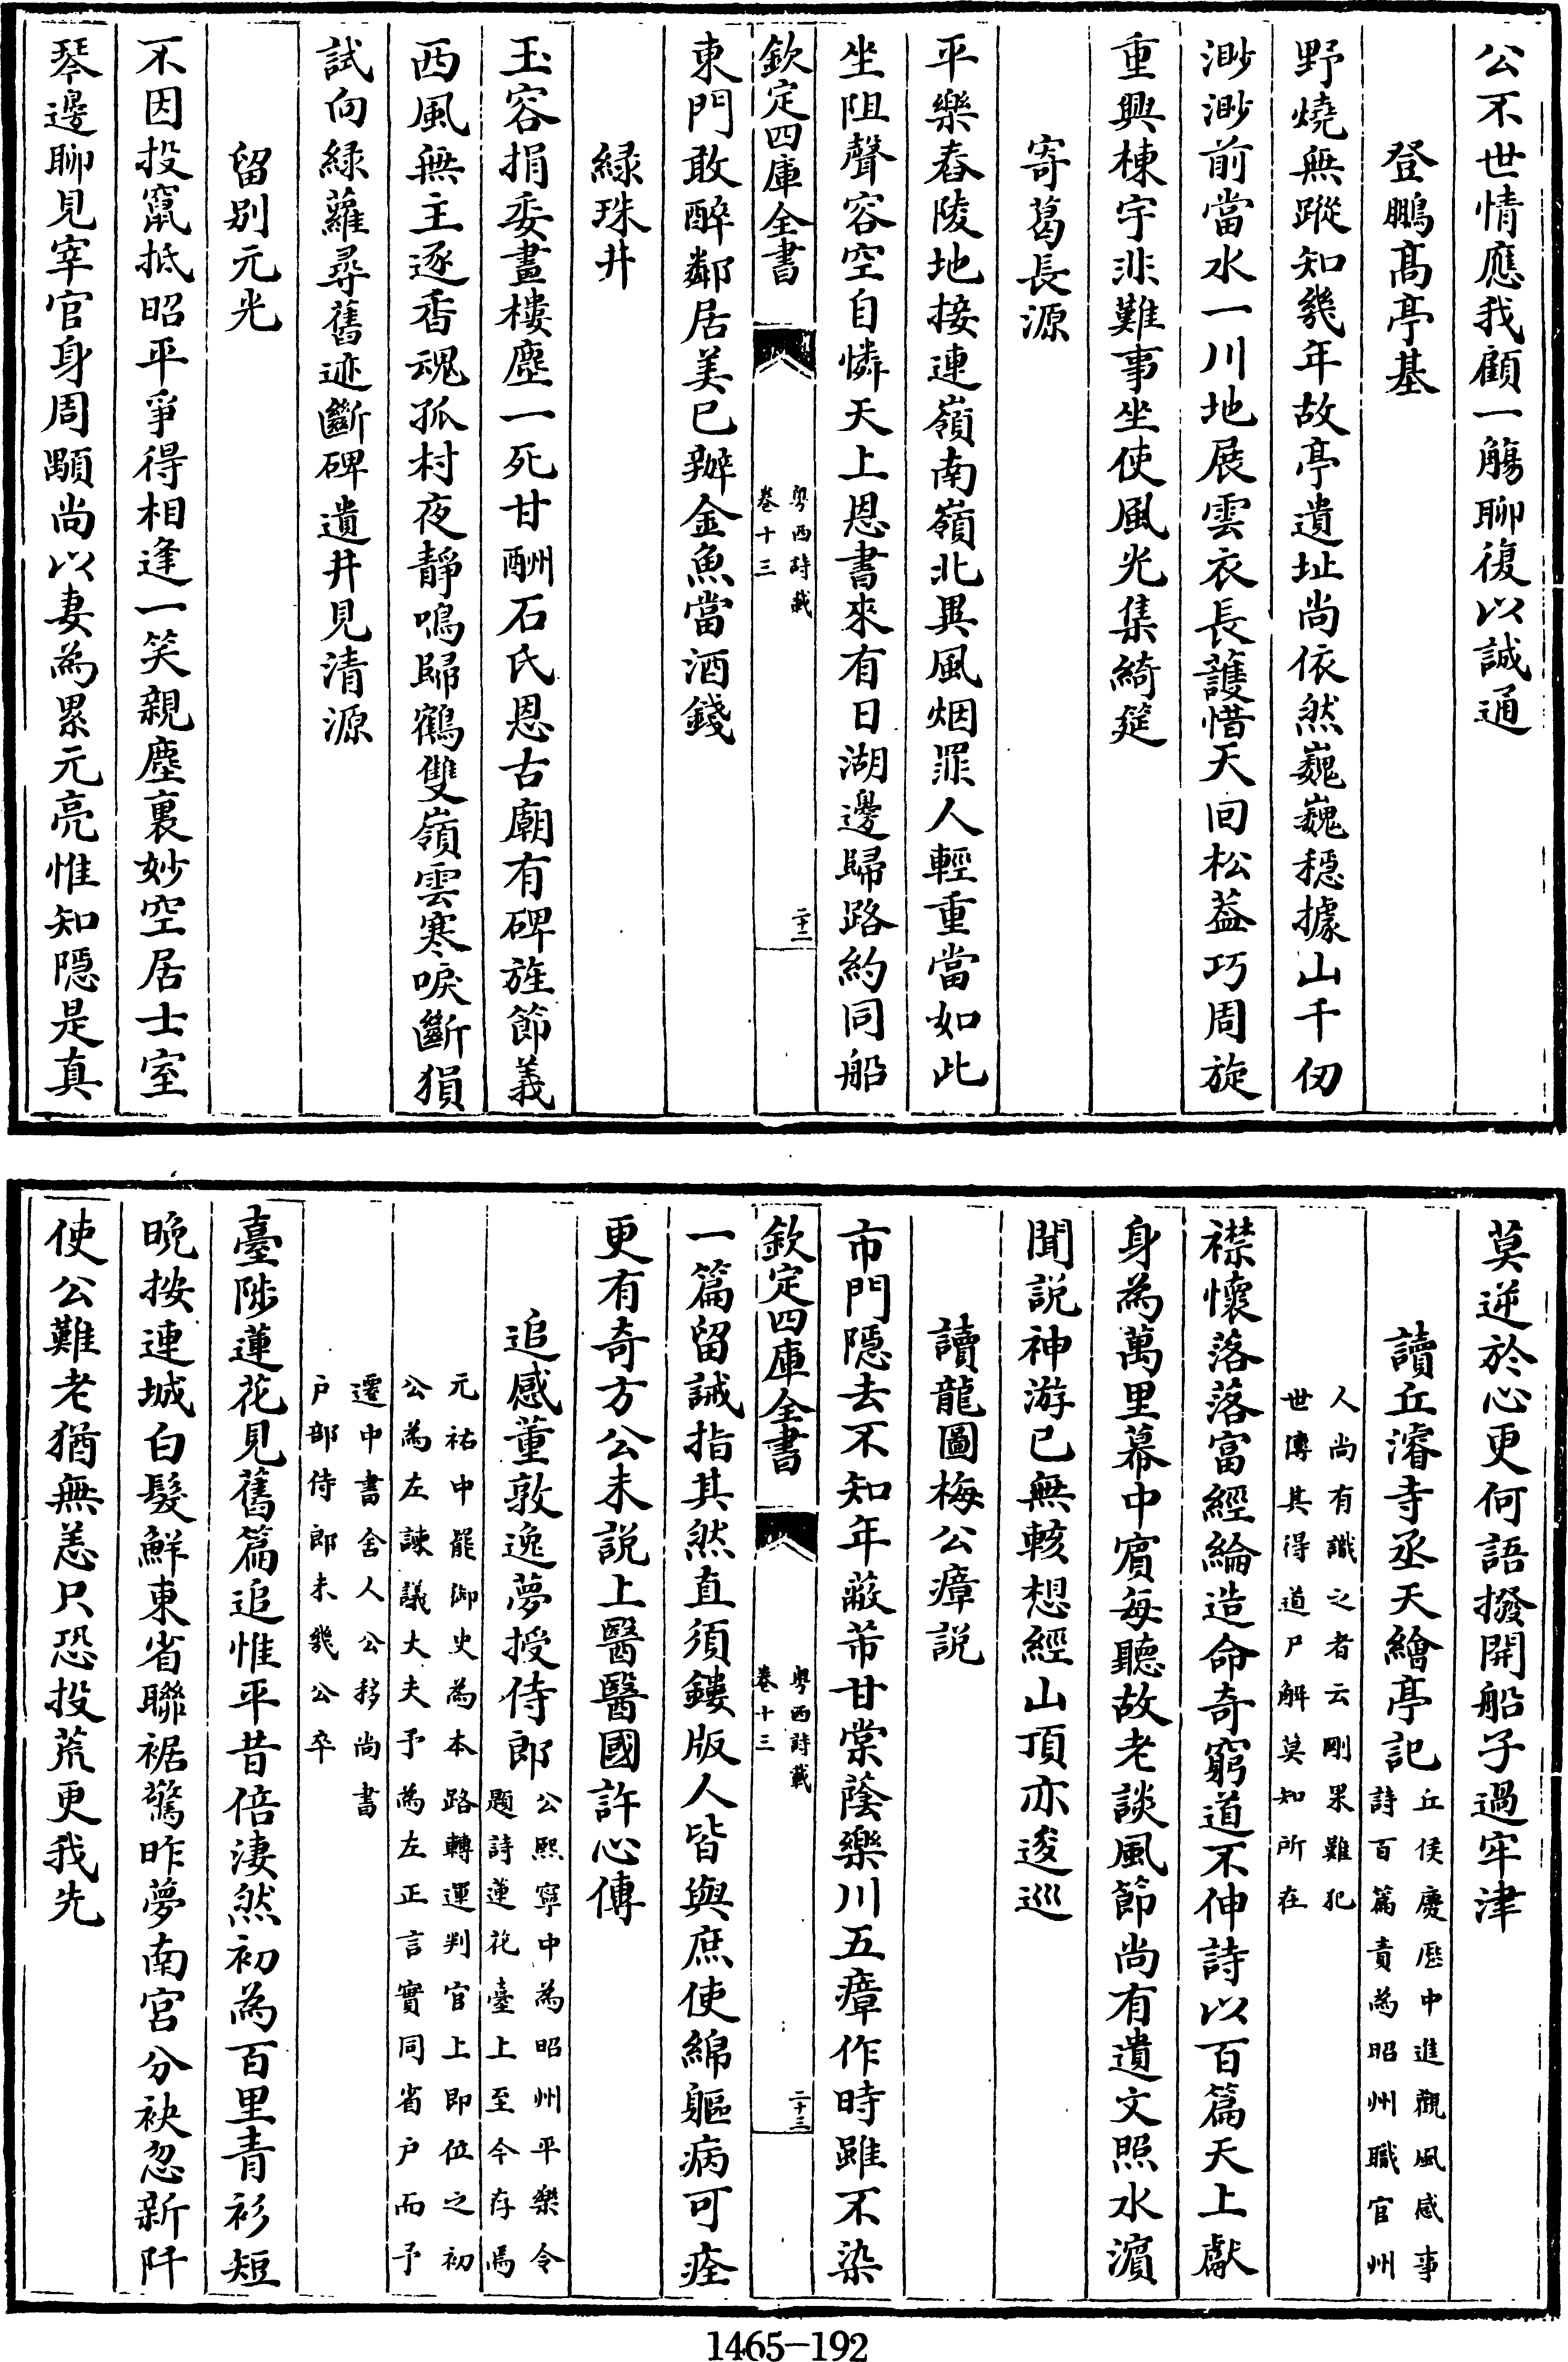 公不世情應我顧一觴聊復以誠通
登鵬髙亭基
野燒無蹤知幾年故亭遺址尚依然巍巍穩據山千仞
渺渺前當水一川地展雲衣長護惜天回松葢巧周旋
重興棟宇非難事坐使風光集綺筵
寄葛長源
平樂舂陵地接連嶺南嶺北異風烟罪人輕重當如此
坐阻聲容空自憐天上恩書來有日湖邊歸路約同船
欽定四庫全書
粤西詩載
卷十三
二十二
東門敢醉鄰居美已辦金魚當酒錢
緑珠井
玉容捐委畫樓塵一死甘酬石氏恩古廟有碑旌節義
西風無主逐香魂孤村夜靜鳴歸鶴雙嶺雲寒唳斷猿
試向緑蘿尋舊迹斷碑遺井見清源
留别元光
不因投竄抵昭平爭得相逢一笑親塵裏妙空居士室
琴邊聊見宰官身周顒尚以妻為累元亮惟知隠是真
莫逆於心更何語撥開船子過牢津
讀丘濬寺丞天繪亭記
丘侯慶厯中進觀風感事
詩百篇責為昭州職官州
人尚有識之者云剛果難犯
世傳其得道尸解莫知所在
襟懷落落富經綸造命奇窮道不伸詩以百篇天上獻
身為萬里幕中賓每聽故老談風節尚有遺文照水濵
聞説神游已無輆想經山頂亦逡巡
讀龍圖梅公瘴説
市門隠去不知年蔽芾甘棠蔭樂川五瘴作時雖不染
欽定四庫全書
粤西詩載
卷十三
二十三
一篇留誡指其然直須鏤版人皆與庶使綿軀病可痊
更有奇方公未説上醫醫國許心傳
追感董敦逸夢授侍郎
公熈寧中為昭州平樂令
題詩蓮花臺上至今存焉
元祐中罷御史為本路轉運判官上即位之初
公為左諫議大夫予為左正言實同省户而予
遷中書舍人公移尚書
户部侍郎未幾公卒
臺陟蓮花見舊篇追惟平昔倍淒然初為百里青衫短
晚按連城白髮鮮東省聯裾驚昨夢南宫分袂忽新阡
使公難老猶無恙只恐投荒更我先
1465-192